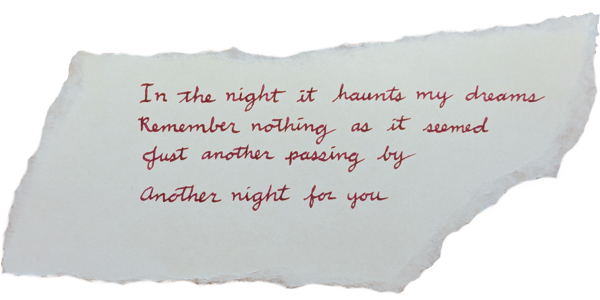 In the night it haunts my dreams
Remember nothing as it seemed
Just another passing by
Another night for you